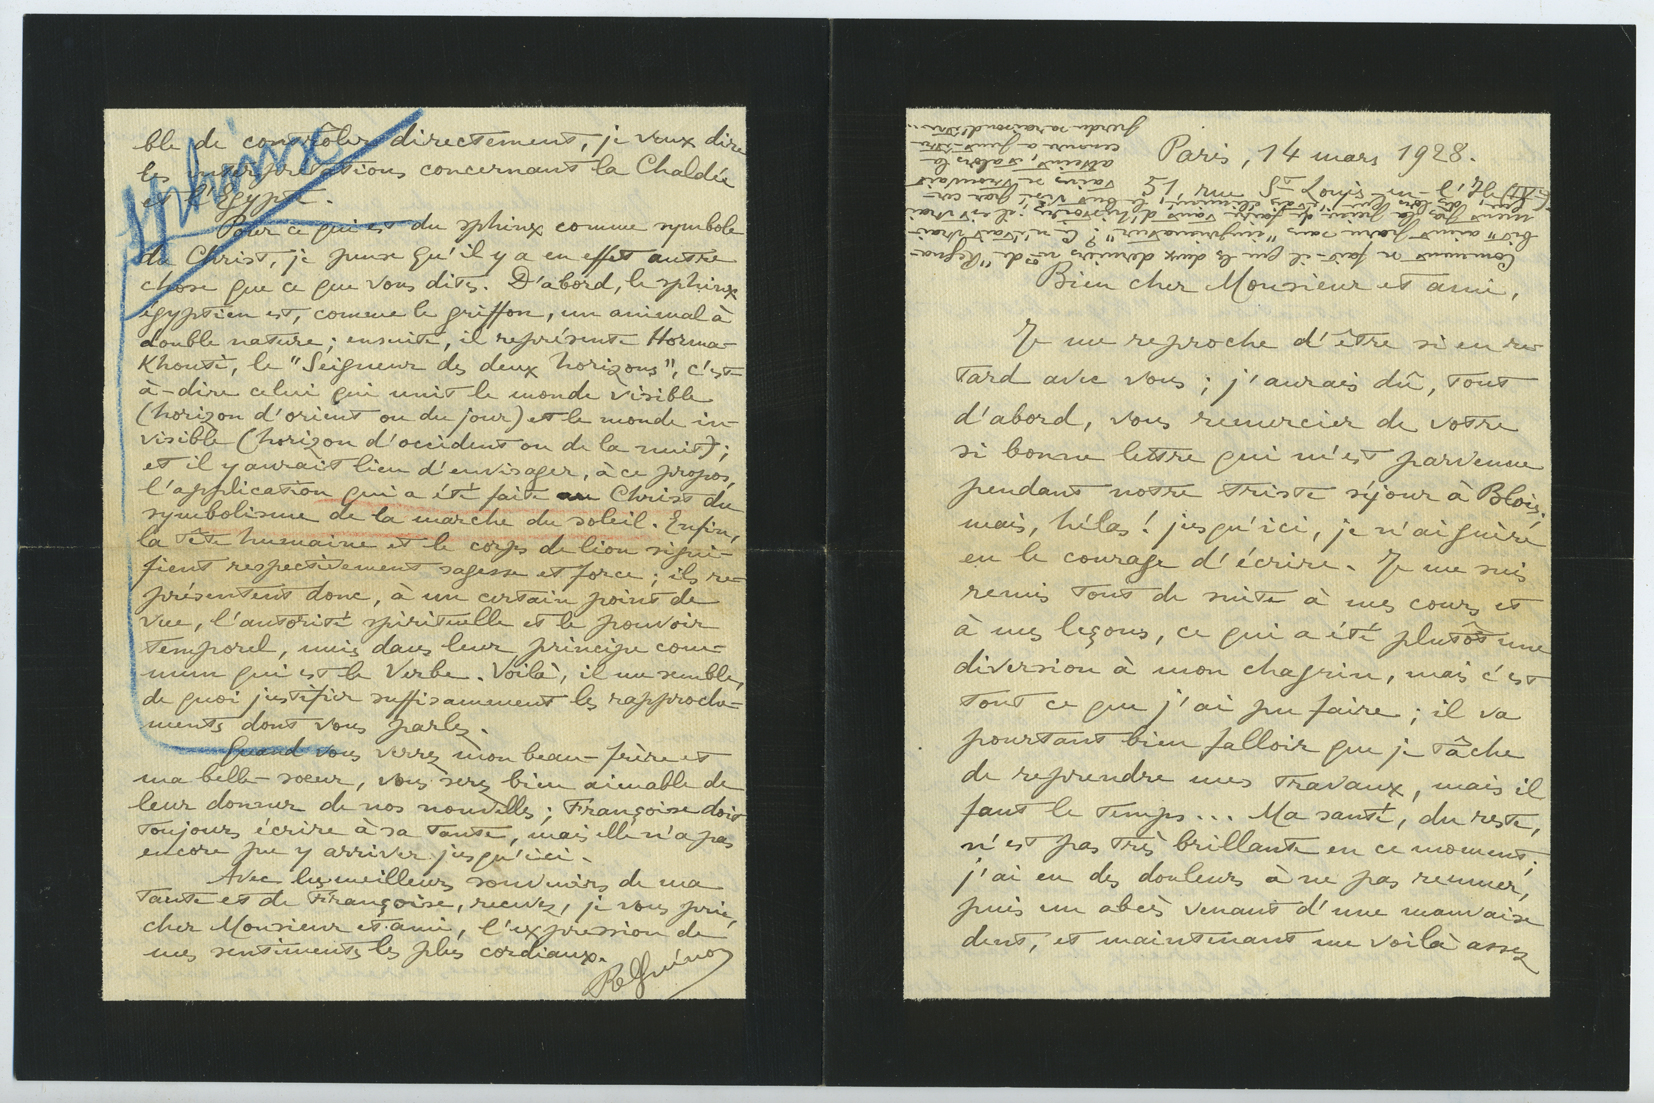 ble de contrôler directement, je veux dire
les interprétations concernant la Chaldée
et l'Egypte.
sphinx
Pour ce qui est du sphinx comme symbole
du Christ, je pense qu'il y a en effet autre
chose que ce que vous dites. D'abord, le sphinx
égyptien est, comme le griffon, un animal à
double nature ; ensuite, il représente Horma-
Khouti, le "Seigneur des deux horizons", c'est-
à-dire celui qui unit le monde visible
(horizon d'orient ou du jour) et le monde in-
visible (horizon d'occident ou de la nuit) ;
et il y aurait lieu d'envisager, à ce propos,
l'application qui a été faite au Christ du
symbolisme de la marche du soleil. Enfin,
la tête humaine et le corps de lion signi-
fient respectivement sagesse et force ; ils re-
présentent donc, à un certain point de
vue, l'autorité spirituelle et le pouvoir
temporel, mais dans leur principe com-
mun qui est le Verbe. Voilà, il me semble,
de quoi justifier suffisamment les rapproche-
ments dont vous parlez.
Quand vous verrez mon beau-frère et
ma belle-soeur, vous serez bien aimable de
leur donner de nos nouvelles ; Françoise doit
toujours écrire à sa tante, mais elle n'a pas
encore pu y arriver jusqu'ici.
Avec les meilleurs souvenirs de ma
tante et de Françoise, recevez, je vous prie,
cher Monsieur et ami, l'expression de
mes sentiments les plus cordiaux.
René Guénon
Paris, 14 mars 1928.
51, rue St-Louis-en-l'Ile (IVe)
Bien cher Monsieur et ami,
Je me reproche d'être si en re-
tard avec vous ; j'aurais dû, tout
d'abord, vous remercier de votre
si bonne lettre qui m'est parvenue
pendant notre triste séjour à Blois ;
mais, hélas ! jusqu'ici, je n'ai guère
eu le courage d'écrire. Je me suis
remis tout de suite à mes cours et
à mes leçons, ce qui a été plutôt une
diversion à mon chagrin, mais c'est
tout ce que j'ai pu faire ; il va
pourtant bien falloir que je tâche
de reprendre mes travaux, mais il
faut le temps... Ma santé, du reste,
n'est pas très brillante en ce moment ;
j'ai eu des douleurs à ne pas remuer,
puis un abcès venant d'une mauvaise
dent, et maintenant me voilà assez
Comment se fait-il que les deux derniers nos de "Regna-
bit" aient paru sans "imprimatur" ? Ce n'était vrai-
ment pas la peine de faire tant d'histoires ; il est vrai
que, dès lors que j'étais éliminé, le but visé par cer-
tains se trouvait
atteint, et alors la
censure a peut-être
perdu sa raison d'être...